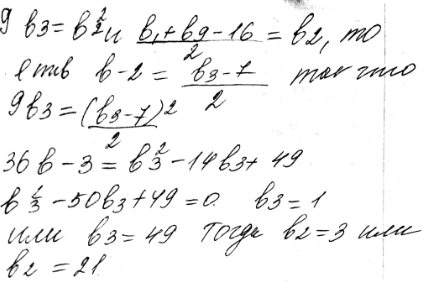 9 b₃ = b₂² и (b₁ + b9 - 16)/2 = b₂, то
есть b - 2 = (b₃ - 7)/2 так что
9b₃ = ((b₃ - 7)/2)²
36 b - 3 = b₃² - 14b₃ + 49
b₃² - 50b₃ + 49 = 0. b₃ = 1
или b₃ = 49 Тогда b₂ = 3 или
b₂ = 21